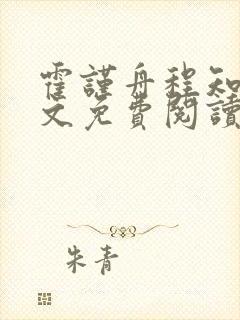 霍謹舟程知
文免費閱讀
朱青